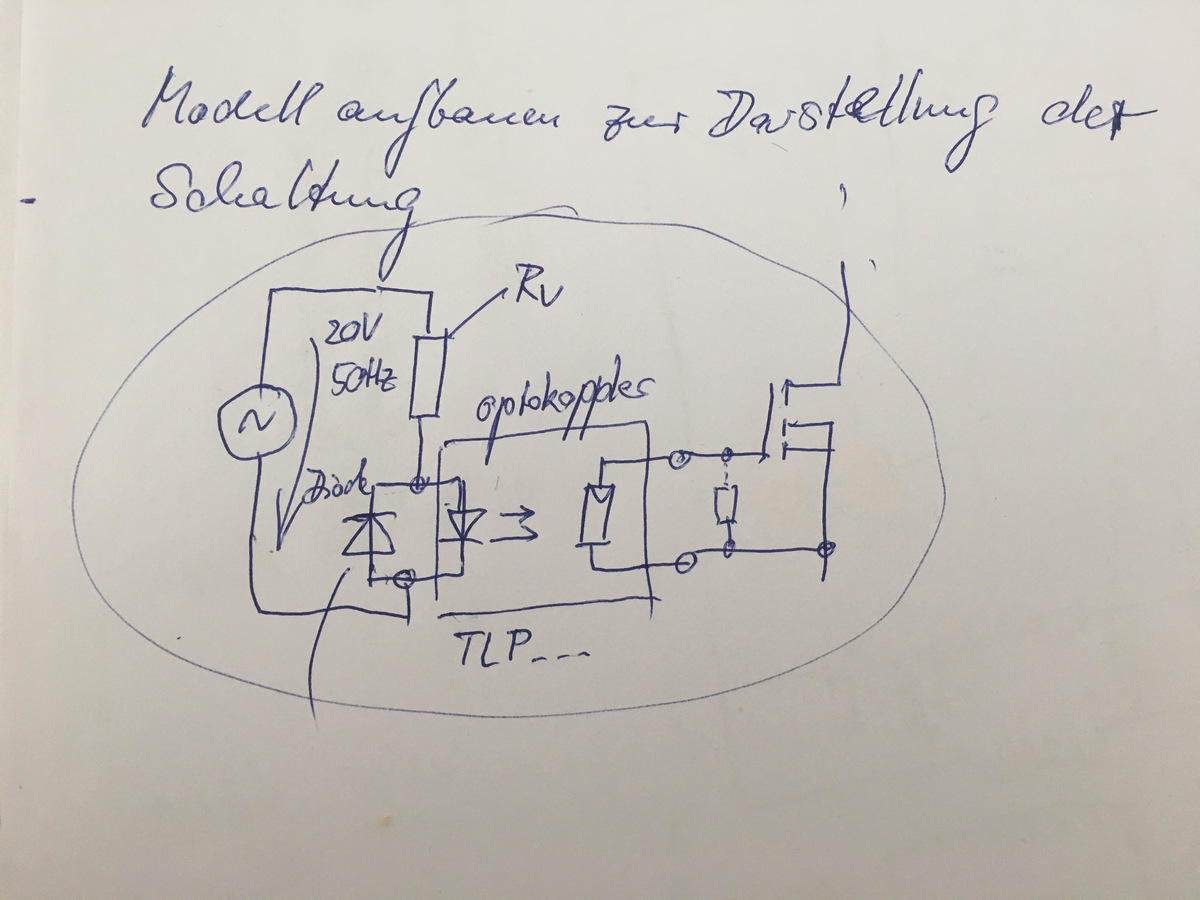 Modell aufbauen zur Darstellung der
Schaltung
Rv
20V
50Hz
optokoppler
Diode
TLP----